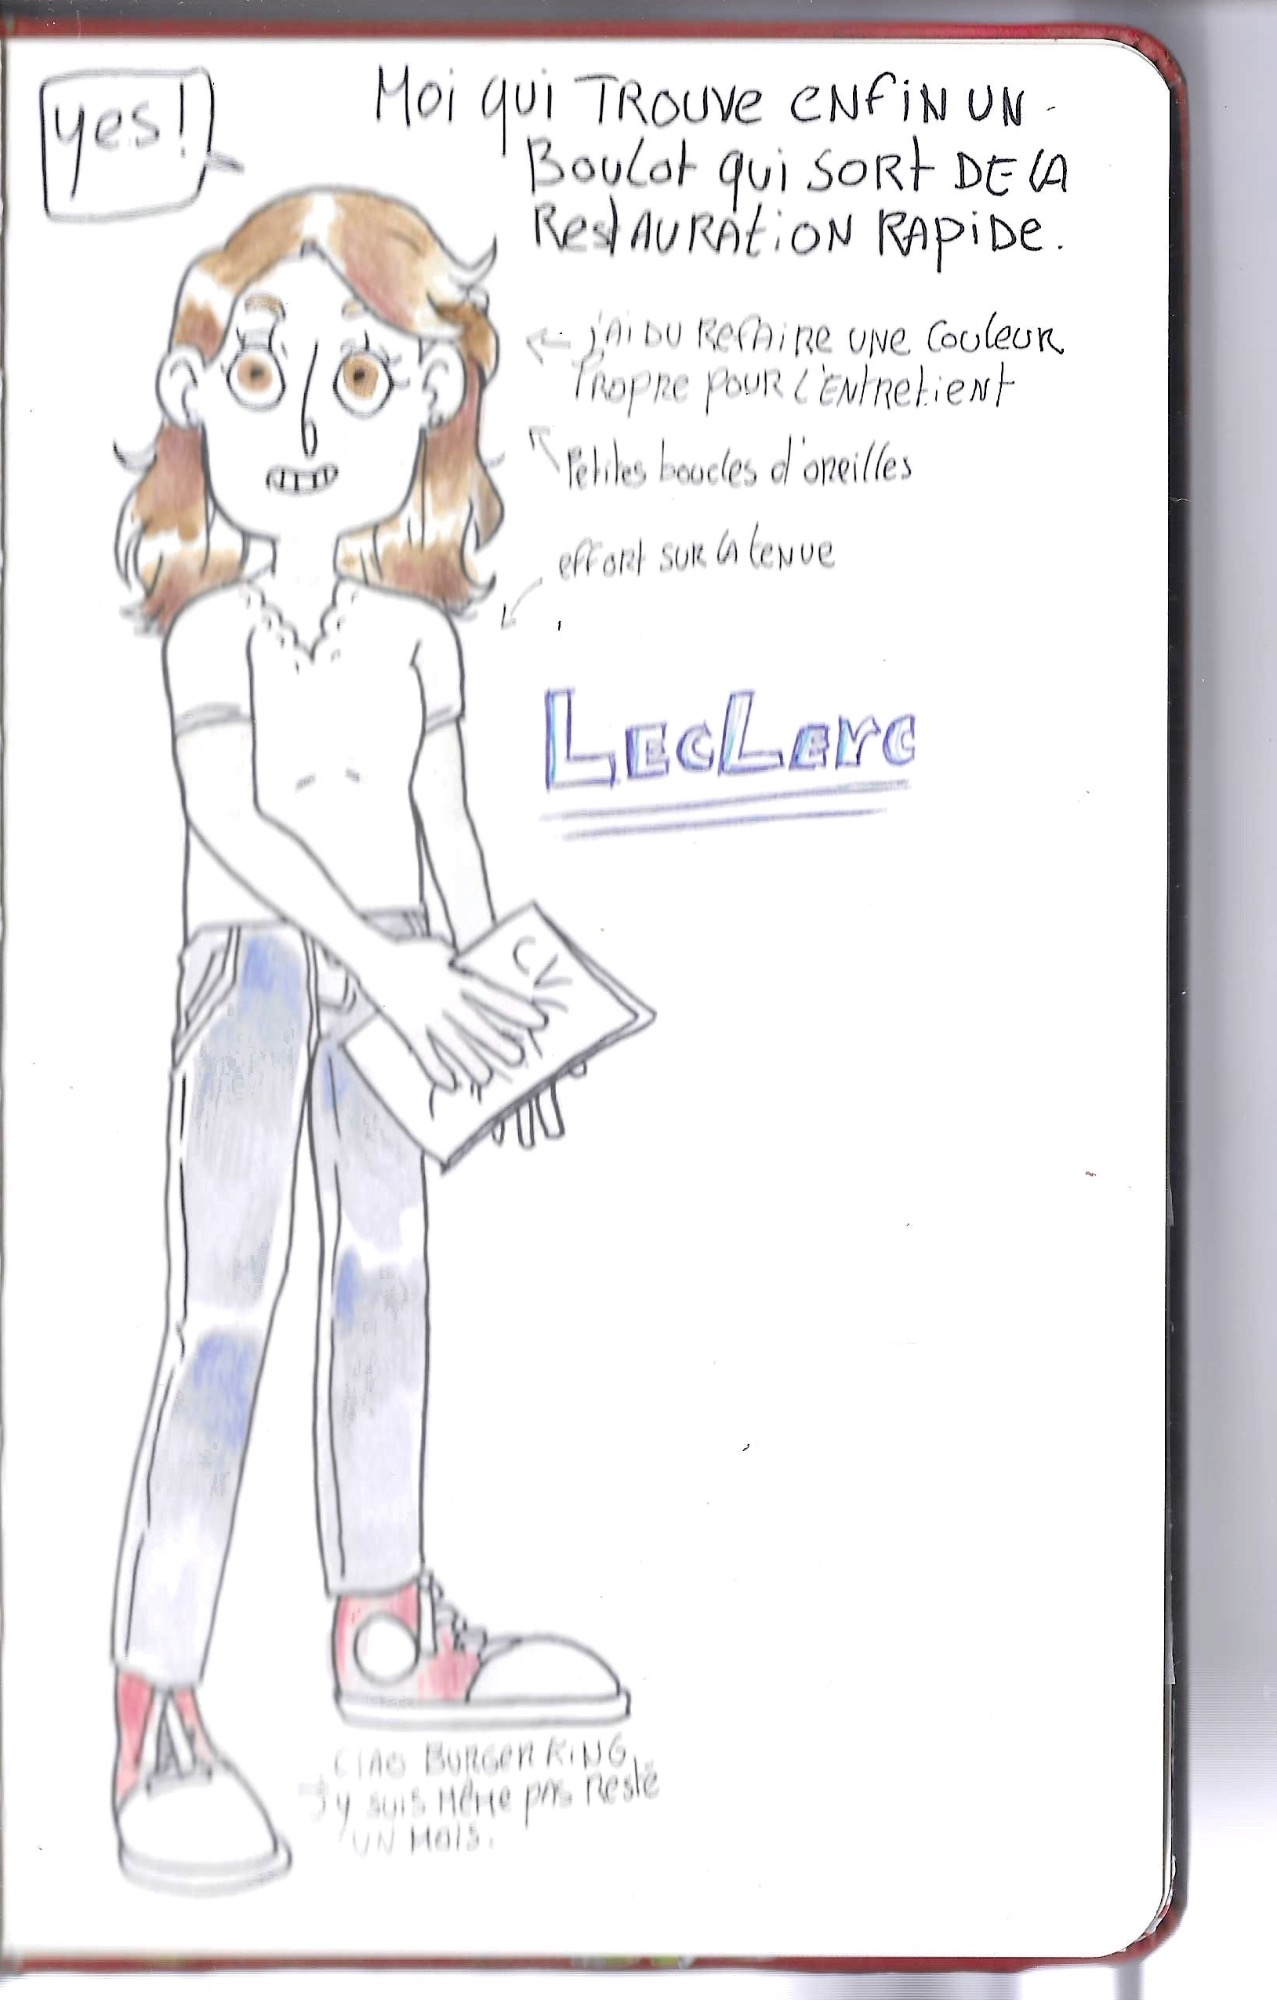 yes!
Moi qui TROUVE ENFIN UN
Boulot qui SORT DE LA
RestAURAtiON RAPiDe.
← j'Ai DU Refaire UNE Couleur
PROPRE POUR L'ENTRetient
Petites boucles d'oreilles
effort SUR LA tenue
LecLerc
CV
CIAO BURGER KING
J'y suis Même pas Resté
UN Mois.